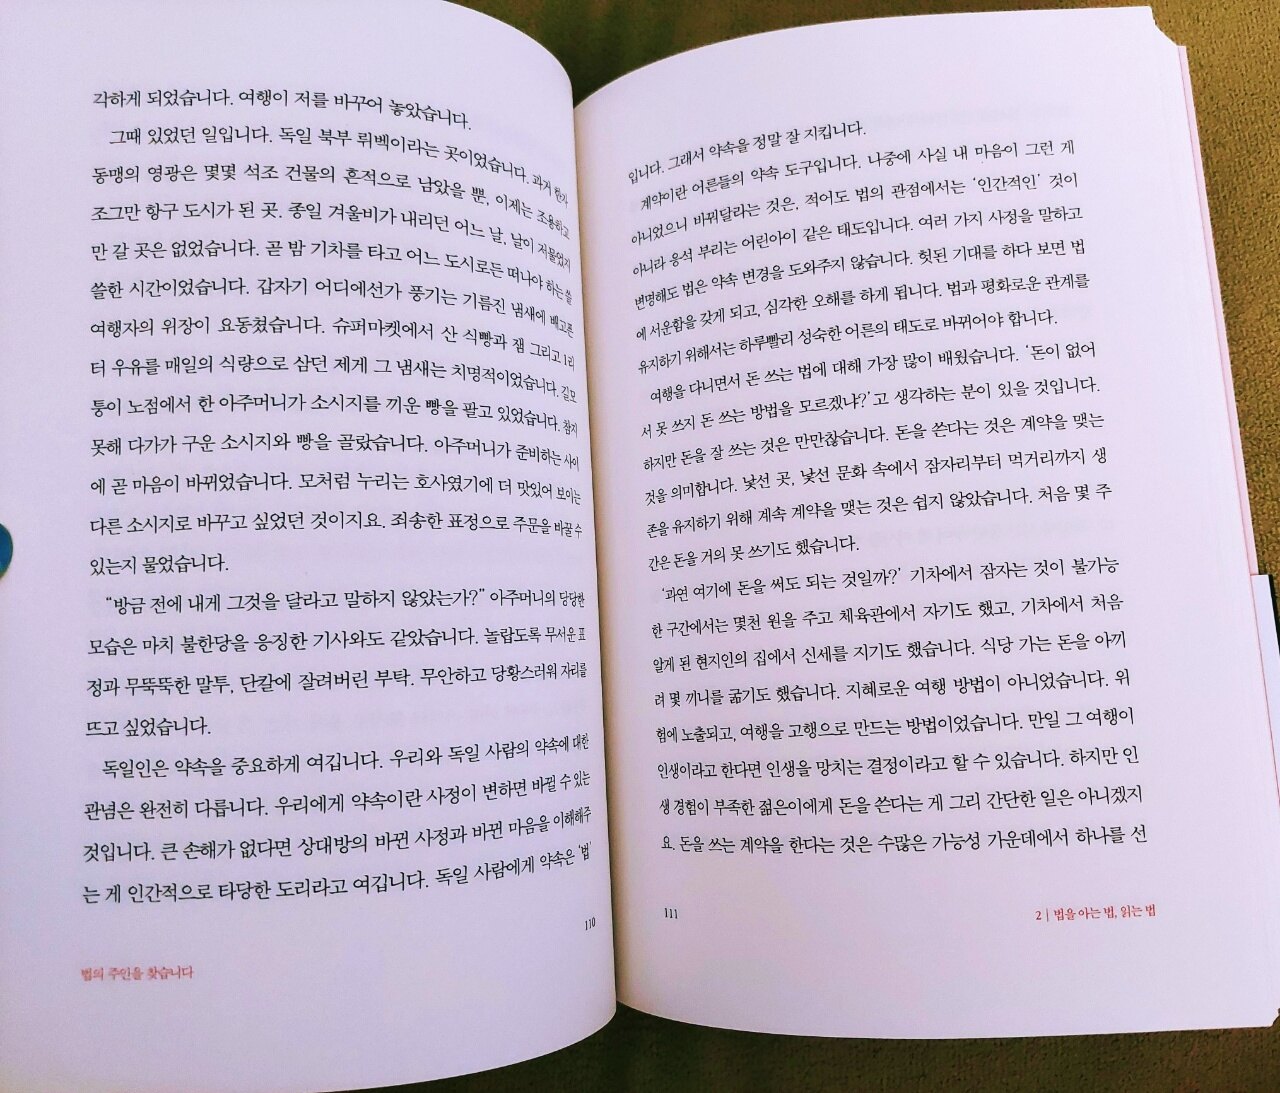 각하게 되었습니다. 여행이 저를 바꾸어 놓았습니다.
그때 있었던 일입니다. 독일 북부 뤼벡이라는 곳이었습니다. 과거 한자
동맹의 영광은 몇몇 석조 건물의 흔적으로 남았을 뿐, 이제는 조용하고
조그만 항구 도시가 된 곳. 종일 겨울비가 내리던 어느 날, 날이 저물었지
만 갈 곳은 없었습니다. 곧 밤 기차를 타고 어느 도시로든 떠나야 하는 쓸
쓸한 시간이었습니다. 갑자기 어디에선가 풍기는 기름진 냄새에 배고픈
여행자의 위장이 요동쳤습니다. 슈퍼마켓에서 산 식빵과 잼 그리고 1리
터 우유를 매일의 식량으로 삼던 제게 그 냄새는 치명적이었습니다. 길모
퉁이 노점에서 한 아주머니가 소시지를 끼운 빵을 팔고 있었습니다. 참지
못해 다가가 구운 소시지와 빵을 골랐습니다. 아주머니가 준비하는 사이
에 곧 마음이 바뀌었습니다. 모처럼 누리는 호사였기에 더 맛있어 보이는
다른 소시지로 바꾸고 싶었던 것이지요. 죄송한 표정으로 주문을 바꿀 수
있는지 물었습니다.
“방금 전에 내게 그것을 달라고 말하지 않았는가?” 아주머니의 당당한
모습은 마치 불한당을 응징한 기사와도 같았습니다. 놀랍도록 무서운 표
정과 무뚝뚝한 말투, 단칼에 잘려버린 부탁. 무안하고 당황스러워 자리를
뜨고 싶었습니다.
독일인은 약속을 중요하게 여깁니다. 우리와 독일 사람의 약속에 대한
관념은 완전히 다릅니다. 우리에게 약속이란 사정이 변하면 바뀔 수 있는
것입니다. 큰 손해가 없다면 상대방의 바뀐 사정과 바뀐 마음을 이해해주
는 게 인간적으로 타당한 도리라고 여깁니다. 독일 사람에게 약속은 ‘법’
110
법의 주인을 찾습니다
입니다. 그래서 약속을 정말 잘 지킵니다.
계약이란 어른들의 약속 도구입니다. 나중에 사실 내 마음이 그런 게
아니었으니 바꿔달라는 것은, 적어도 법의 관점에서는 ‘인간적인’ 것이
아니라 응석 부리는 어린아이 같은 태도입니다. 여러 가지 사정을 말하고
변명해도 법은 약속 변경을 도와주지 않습니다. 헛된 기대를 하다 보면 법
에 서운함을 갖게 되고, 심각한 오해를 하게 됩니다. 법과 평화로운 관계를
유지하기 위해서는 하루빨리 성숙한 어른의 태도로 바뀌어야 합니다.
여행을 다니면서 돈 쓰는 법에 대해 가장 많이 배웠습니다. ‘돈이 없어
서 못 쓰지 돈 쓰는 방법을 모르겠냐?’고 생각하는 분이 있을 것입니다.
하지만 돈을 잘 쓰는 것은 만만찮습니다. 돈을 쓴다는 것은 계약을 맺는
것을 의미합니다. 낯선 곳, 낯선 문화 속에서 잠자리부터 먹거리까지 생
존을 유지하기 위해 계속 계약을 맺는 것은 쉽지 않았습니다. 처음 몇 주
간은 돈을 거의 못 쓰기도 했습니다.
‘과연 여기에 돈을 써도 되는 것일까?’ 기차에서 잠자는 것이 불가능
한 구간에서는 몇천 원을 주고 체육관에서 자기도 했고, 기차에서 처음
알게 된 현지인의 집에서 신세를 지기도 했습니다. 식당 가는 돈을 아끼
려 몇 끼니를 굶기도 했습니다. 지혜로운 여행 방법이 아니었습니다. 위
험에 노출되고, 여행을 고행으로 만드는 방법이었습니다. 만일 그 여행이
인생이라고 한다면 인생을 망치는 결정이라고 할 수 있습니다. 하지만 인
생 경험이 부족한 젊은이에게 돈을 쓴다는 게 그리 간단한 일은 아니겠지
요. 돈을 쓰는 계약을 한다는 것은 수많은 가능성 가운데에서 하나를 선
111
2 | 법을 아는 법, 읽는 법